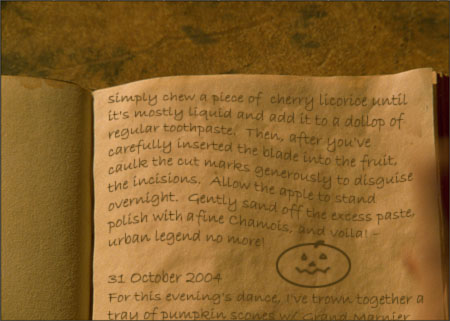 simply chew a piece of cherry licorice until
it's mostly liquid and add it to a dollop of
regular toothpaste. Then, after you've
carefully inserted the blade into the fruit,
caulk the cut marks generously to disguise
the incisions. Allow the apple to stand
overnight. Gently sand off the excess paste,
polish with a fine Chamois, and voila! -
urban legend no more!
31 October 2004
For this evening's dance, I've trown together a
tray of pumpkin scones w/ Grand Marnier